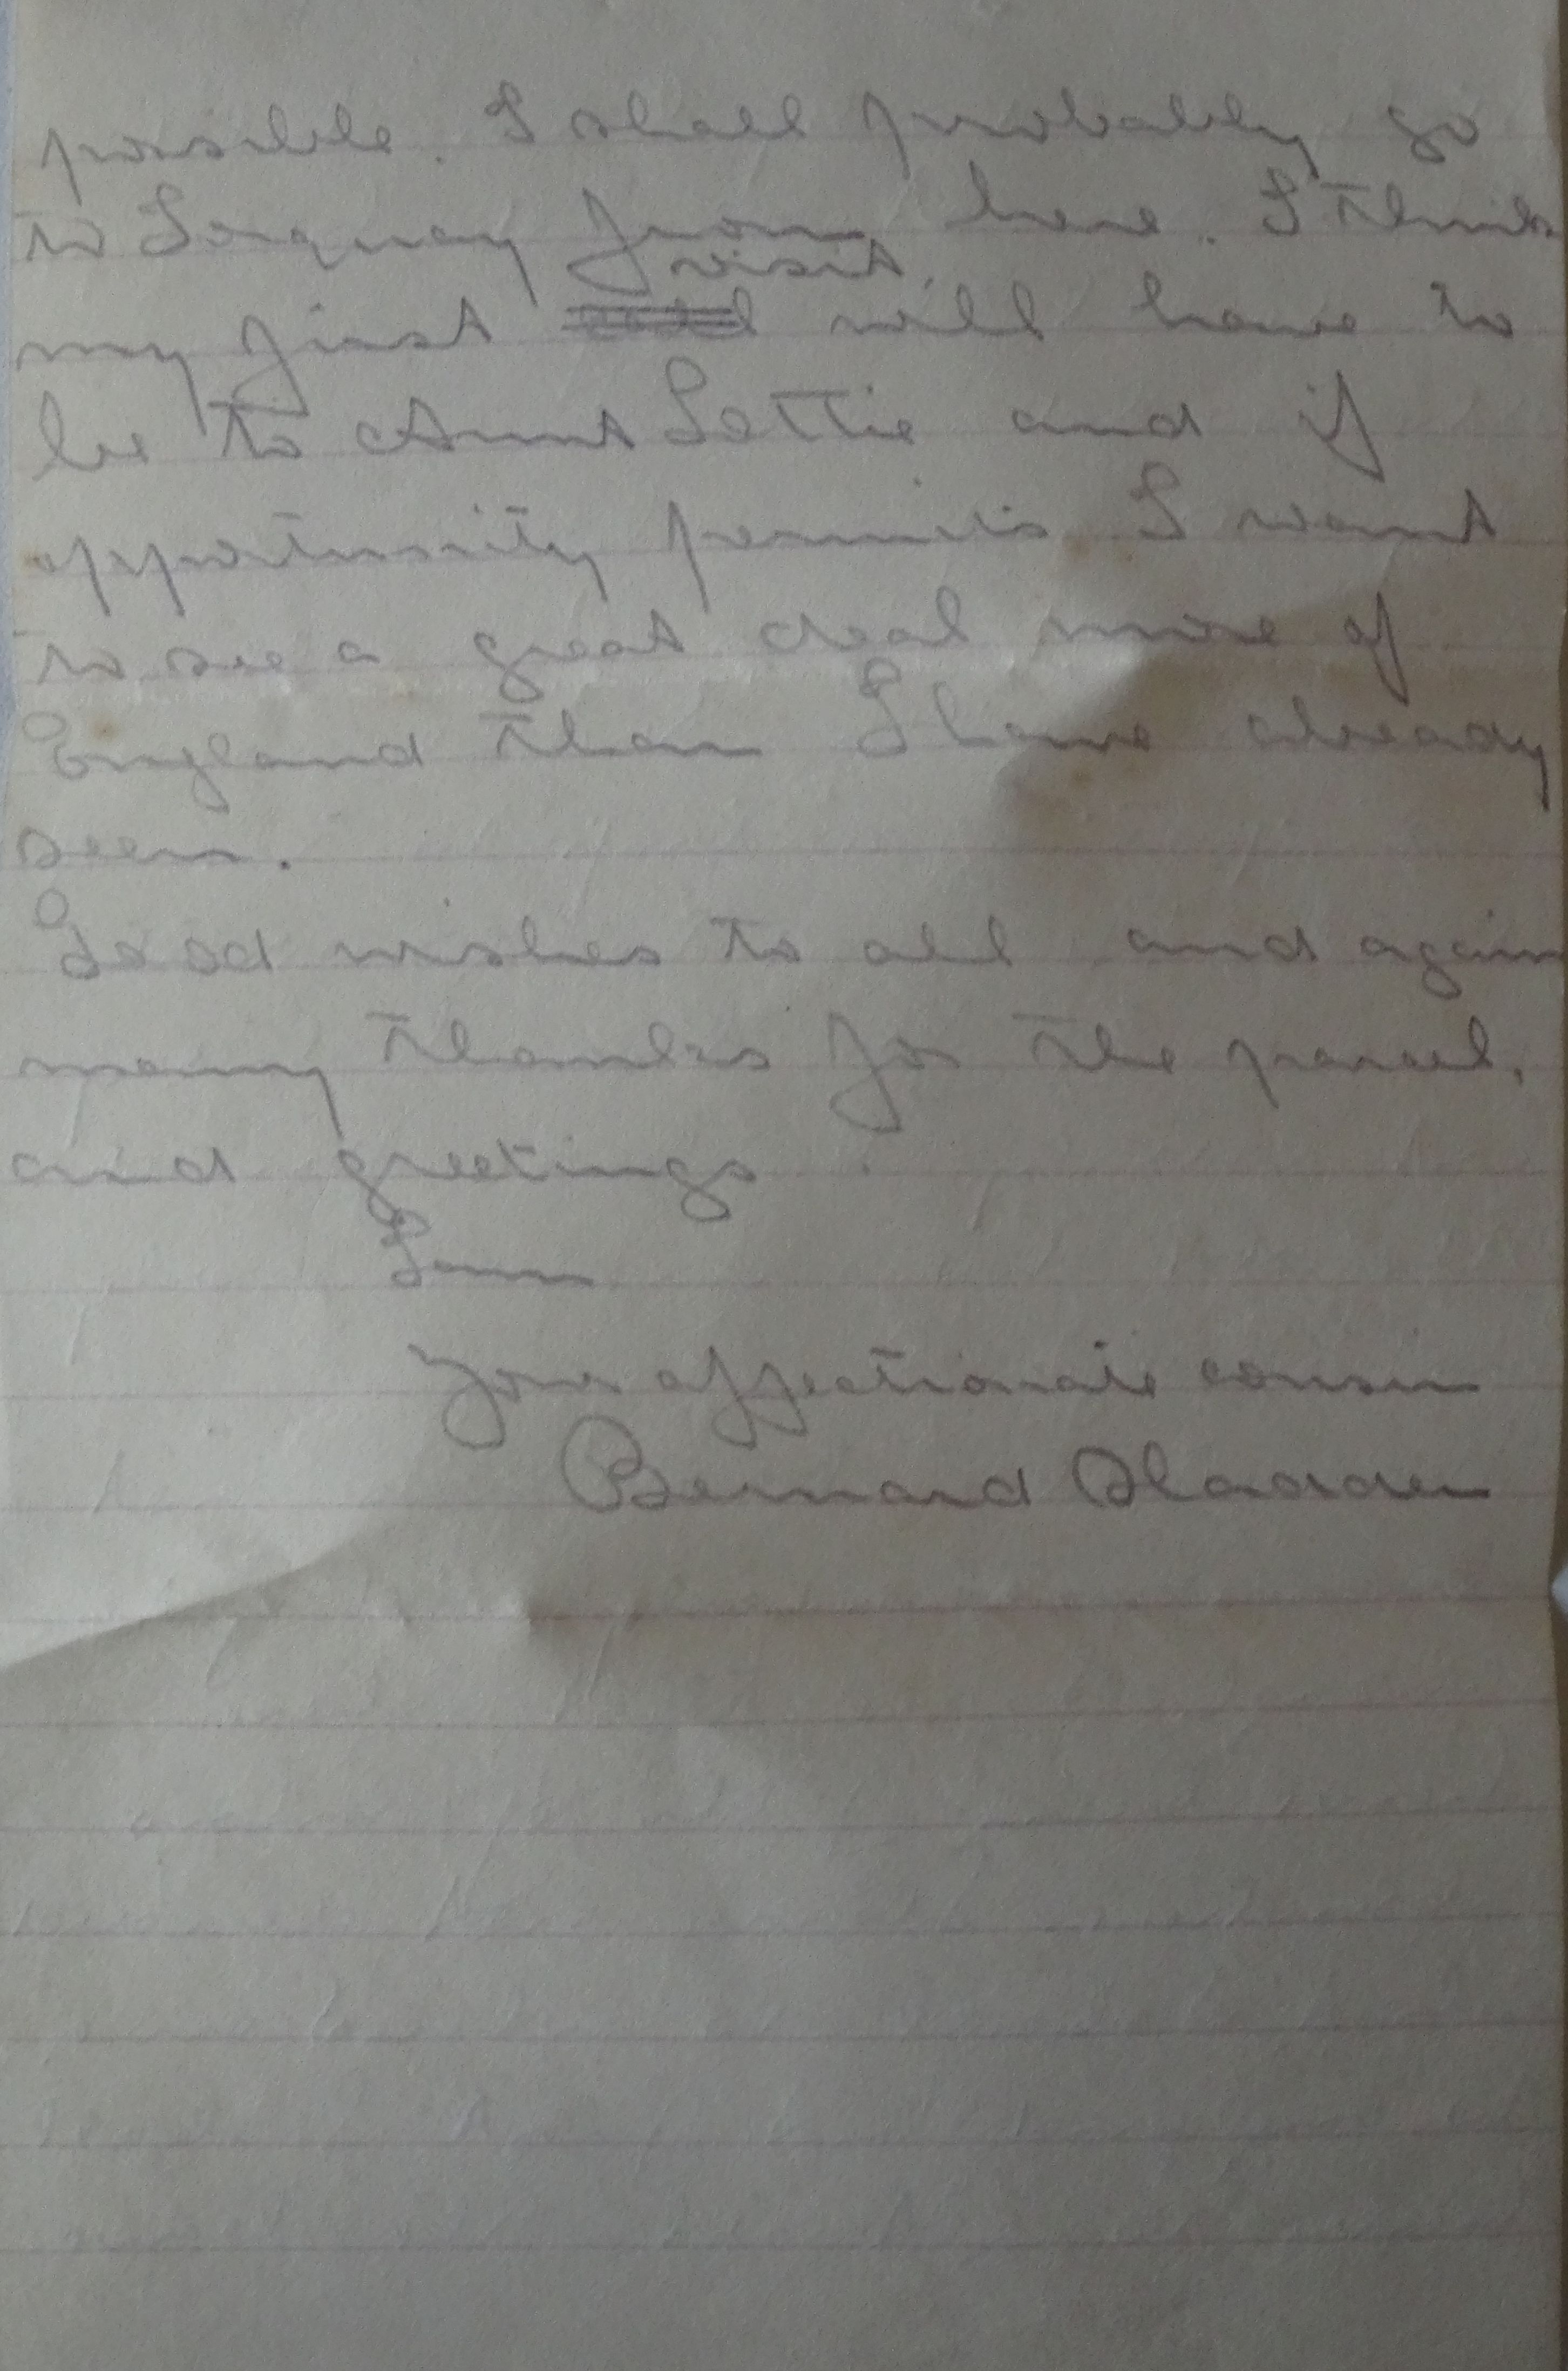 possible. I shall probably go
to Torquay from here. I think
my first visit will have to
be to Aunt Lettie and if
opportunity permits I want
to see a great deal more of
England than I have already
seen.
Good wishes to all and again
many thanks for the parcel,
and greetings.
I am
Your affectionate cousin
Bernard Sladden